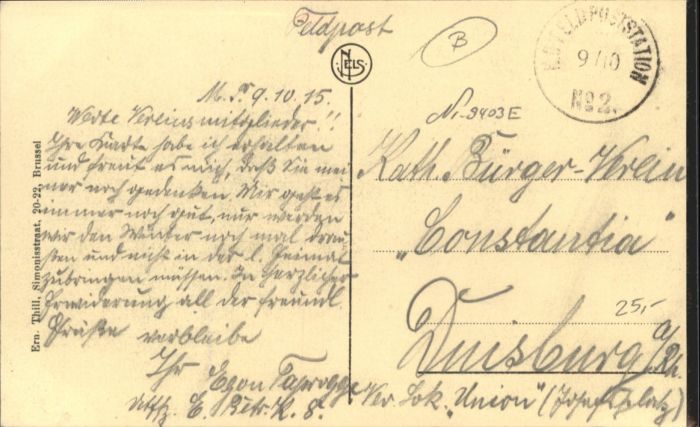 Feldpost
B
NELS
K.D. FELDPOSTSTATION
9/10
No 2.
M. 9.10.15.
Werte Vereinsmitglieder!!
Ihre Karte habe ich erhalten
und freut es mich, daß Sie mei
ner noch gedenken. Mir geht es
immer noch gut, nur werden
wir den Winter noch mal drau
ßen und nicht in der l. Heimat
zubringen müssen. In herzlicher
Erwiderung all der freundl.
Grüße verbleibe
Ihr
Egon
E. K. 8.
Ern. Thill, Simonisstraat, 20-22, Brussel
Nr. 9403E
Kath. Bürger-Verein
"Constantia"
Duisburg a/Rh.
25,-
Ver. Lok. "Union" (Josefsplatz)